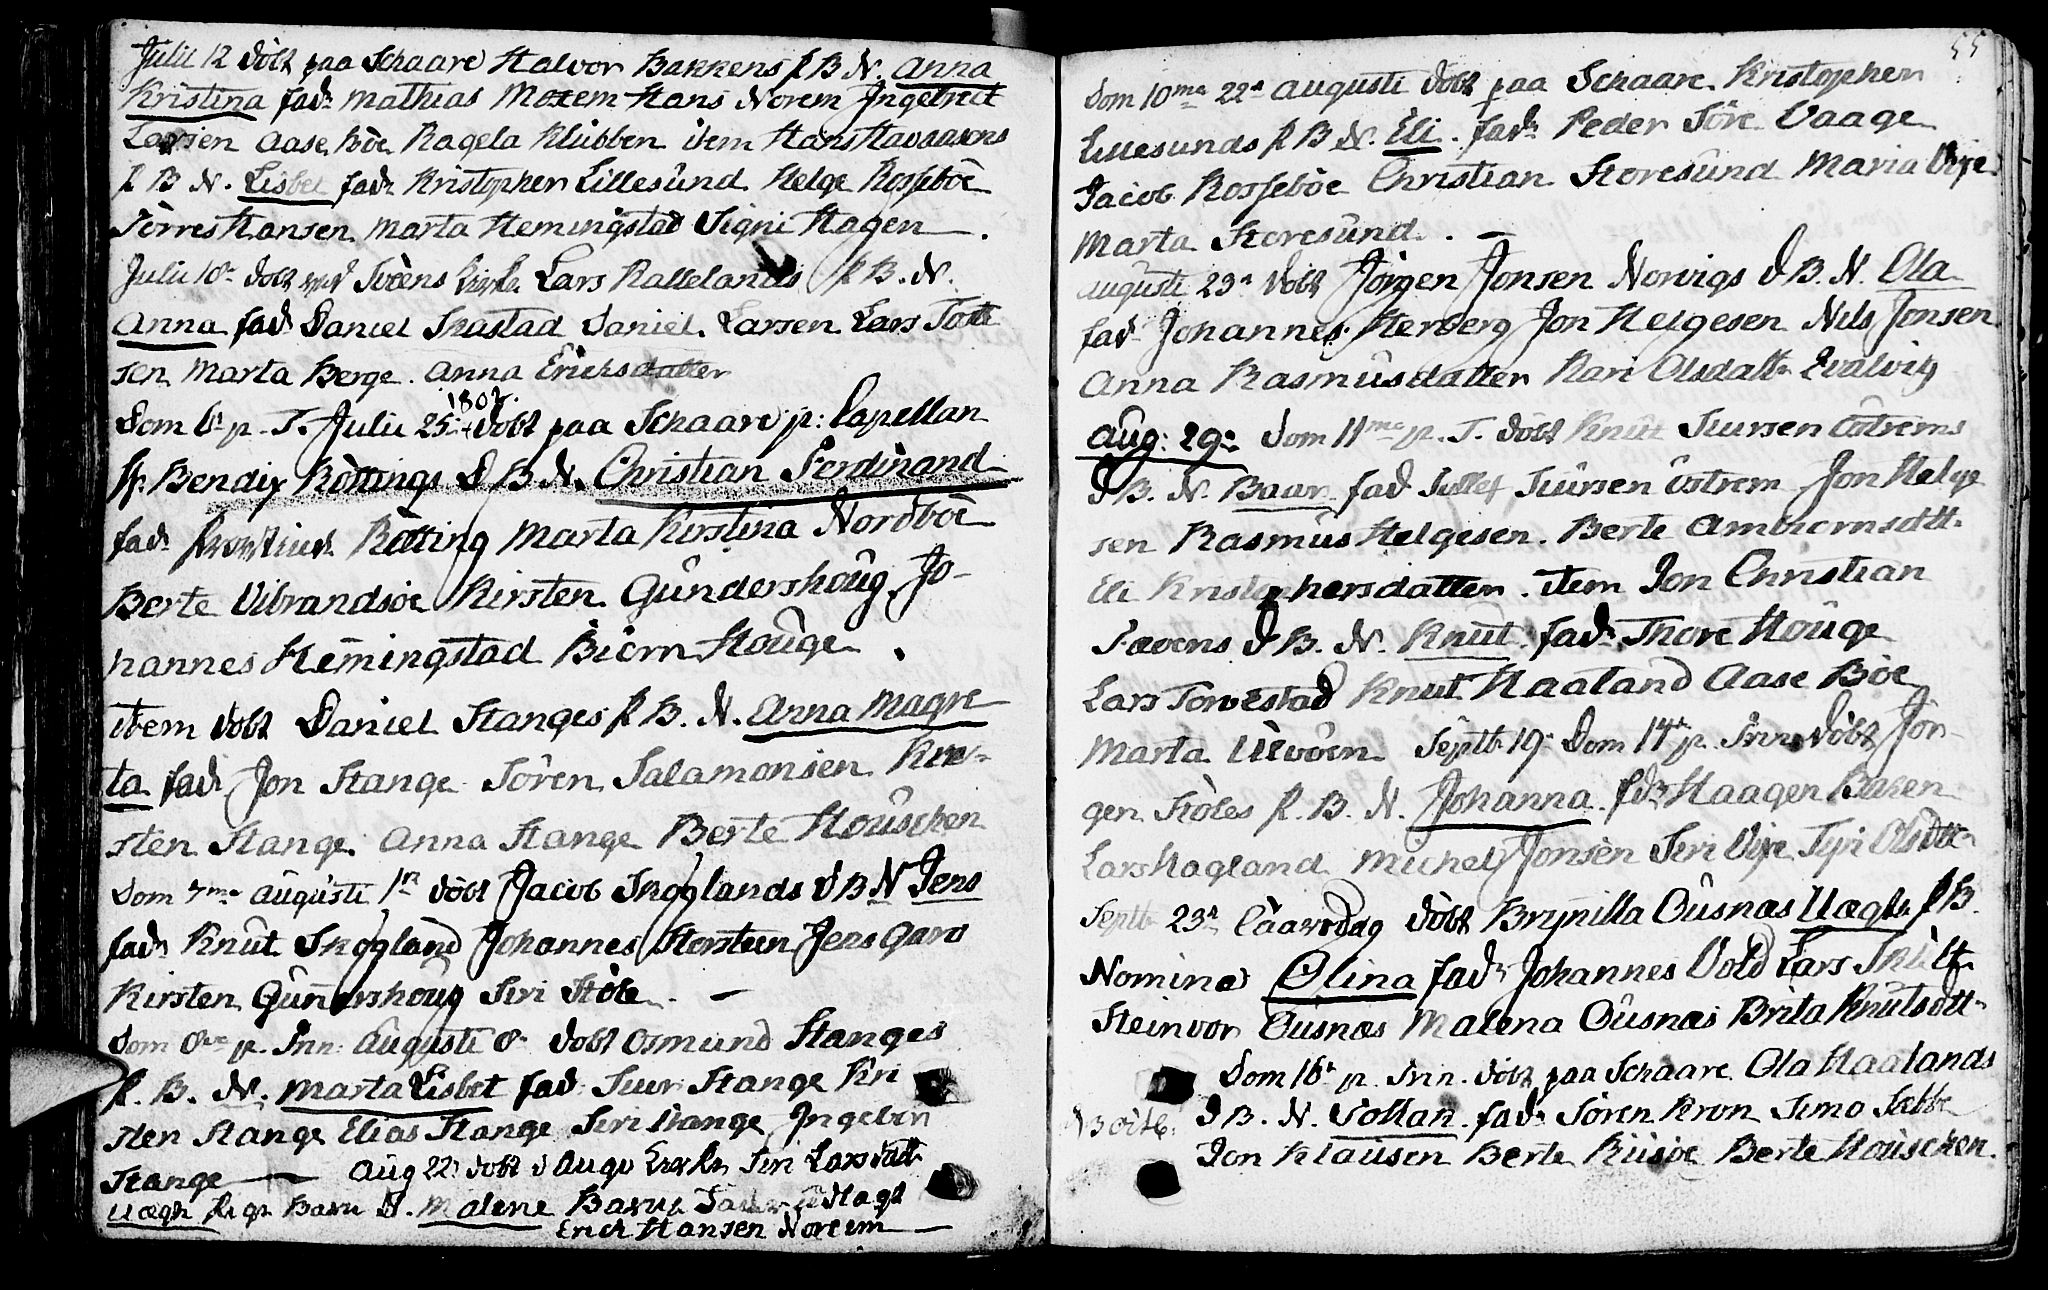 Julii 12 döbt paa Schaare Halvor Bakkens P B N. Anna
Kristina fadr Mathias Moxem Hans Norem Ingebret
Larsen Aase Böe Ragela Klubben item Hans Havaasens
P B N. Lisbet fadr Kristopher Lillesund Helge Rossebōe
Törres Hansen Marta Hemingstad Signi Hagen
Julii 18 dobt ved Kirke Lars Kallelands P B. N.
Anna fadr Daniel Skastad Daniel Larsen Lars
sen Marta Berge. Anna Ericksdatter
1802.
Dom 6 p. T. Julii 25 döbt paa Schaare p: Capellan
Hr. Bendix Röttings D B N. Christian Ferdinand
fadr Rötting Marta Kirstina Nordböe
Berte Vibrandsöe Kirsten Gunderskoug Jo-
hannes Hemingstad Biörn Houge
item döbt Daniel Stanges P B. N. Anna Magre
ta fadr Jon Stange Sören Salamonsen Kir-
sten Stange Anna Stange Berte Housken
Dom 7me Augusti 1 döbt Jacob Skoglands D B N Jens
fadr Knut Skogland Johannes Storsteen Jens Gard
Kirsten Gunderskoug Siri Stöle
Dom 8ve p. Trin. Augusti 8 dobt Osmund Stanges
P. B. N. Marta Lisbet fadr Siur Stange Kri
sten Stange Elias Stange Siri Stange Ingebor
Stange Aug 22 dobt i Augv Kirke Siri Larsdatt
Uægte Pige Barn N. Malene Barne Fader
Erich Hansen Noreim
55
Dom 10me 22 Augusti dobt paa Schaare Kristopher
Lillesunds P B N. Eli. fadr Peder Töre Vaage
Jacob Rosseböe Christian Storesund Maria Vije
Marta Storesund.
Augusti 23 döbt Jörgen Jonsen Norvigs D B. N. Ola
fadr Johannes Herberg Jon Helgesen Nils Jonsen
Anna Rasmusdatter Kari Olsdattr Evalvig
Aug: 29 Dom 11me p. T. döbt Knut Siursen Östrems
D B. N. Baar fadr Siursen Östrem Jon Helge
sen Rasmus Helgesen. Berte Ambiornsdtt.
Eli Kristophersdatter. item Jon Christian
D B. N. Knut fadr Thore Houge
Lars Torvestad Knut Haaland Aase Böe
Marta Septb 19 Dom 14 p. Trin döbt Jör-
gen Stöles P. B. N. Johanna fadr Haagen Basen
Lars Hagland Michel Jonsen Siri Vije Siri Olsdtt
Septb 23 Laaverdag döbt Brynilla Ousnæs Uægte P B.
Nomine Olina fadr Johannes Vold Lars
Steinvor Ousnæs Malena Ousnæs Brita Knutsdtt.
Dom 16 p. Trin. döbt paa Schaare Ola Haalands
D B. N. fadr Sören Kron Simo
3 Octb.
Jon Klausen Berte Risöe Berte Housken.